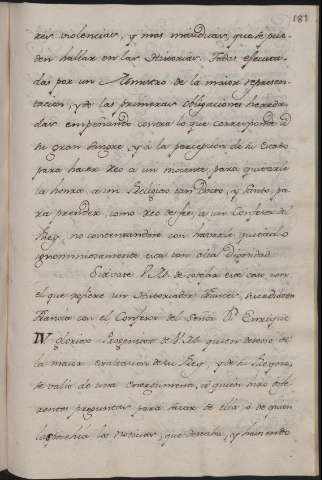 181
res violencias, y mas maudicas, que se pue-
den hallar en las Historias. Todas executa-
das por un Ministro de la maior represen-
tacion, y de las primeras Obligaciones hereda-
das empeñando contra lo que corresponde a
su gran Sangre, y a la percepcion de su Estado
para hacer Reo a un inocente, para quitarle
la honra a un Religioso tan Docto, y Santo, pa-
ra prender, como Reo de fee, a un Confesor del
Rey, no contentandose con haverle quitado
ignominiosamente esta tan alta Dignidad.
Sirvase V. M. de cotejar este caso con
el que refiere un Historiador Frances, sucedido en
Francia con el Confesor del Señor Enrique
IV glorioso Progenitor de V. M. quien deseoso de
la maior exaltacion de su Rey, y de su Reyno,
se valio de una Energumena, a quien hizo dife-
rentes preguntas para sacar de ella, o de quien
las noticias, que deseaba, y haviendo